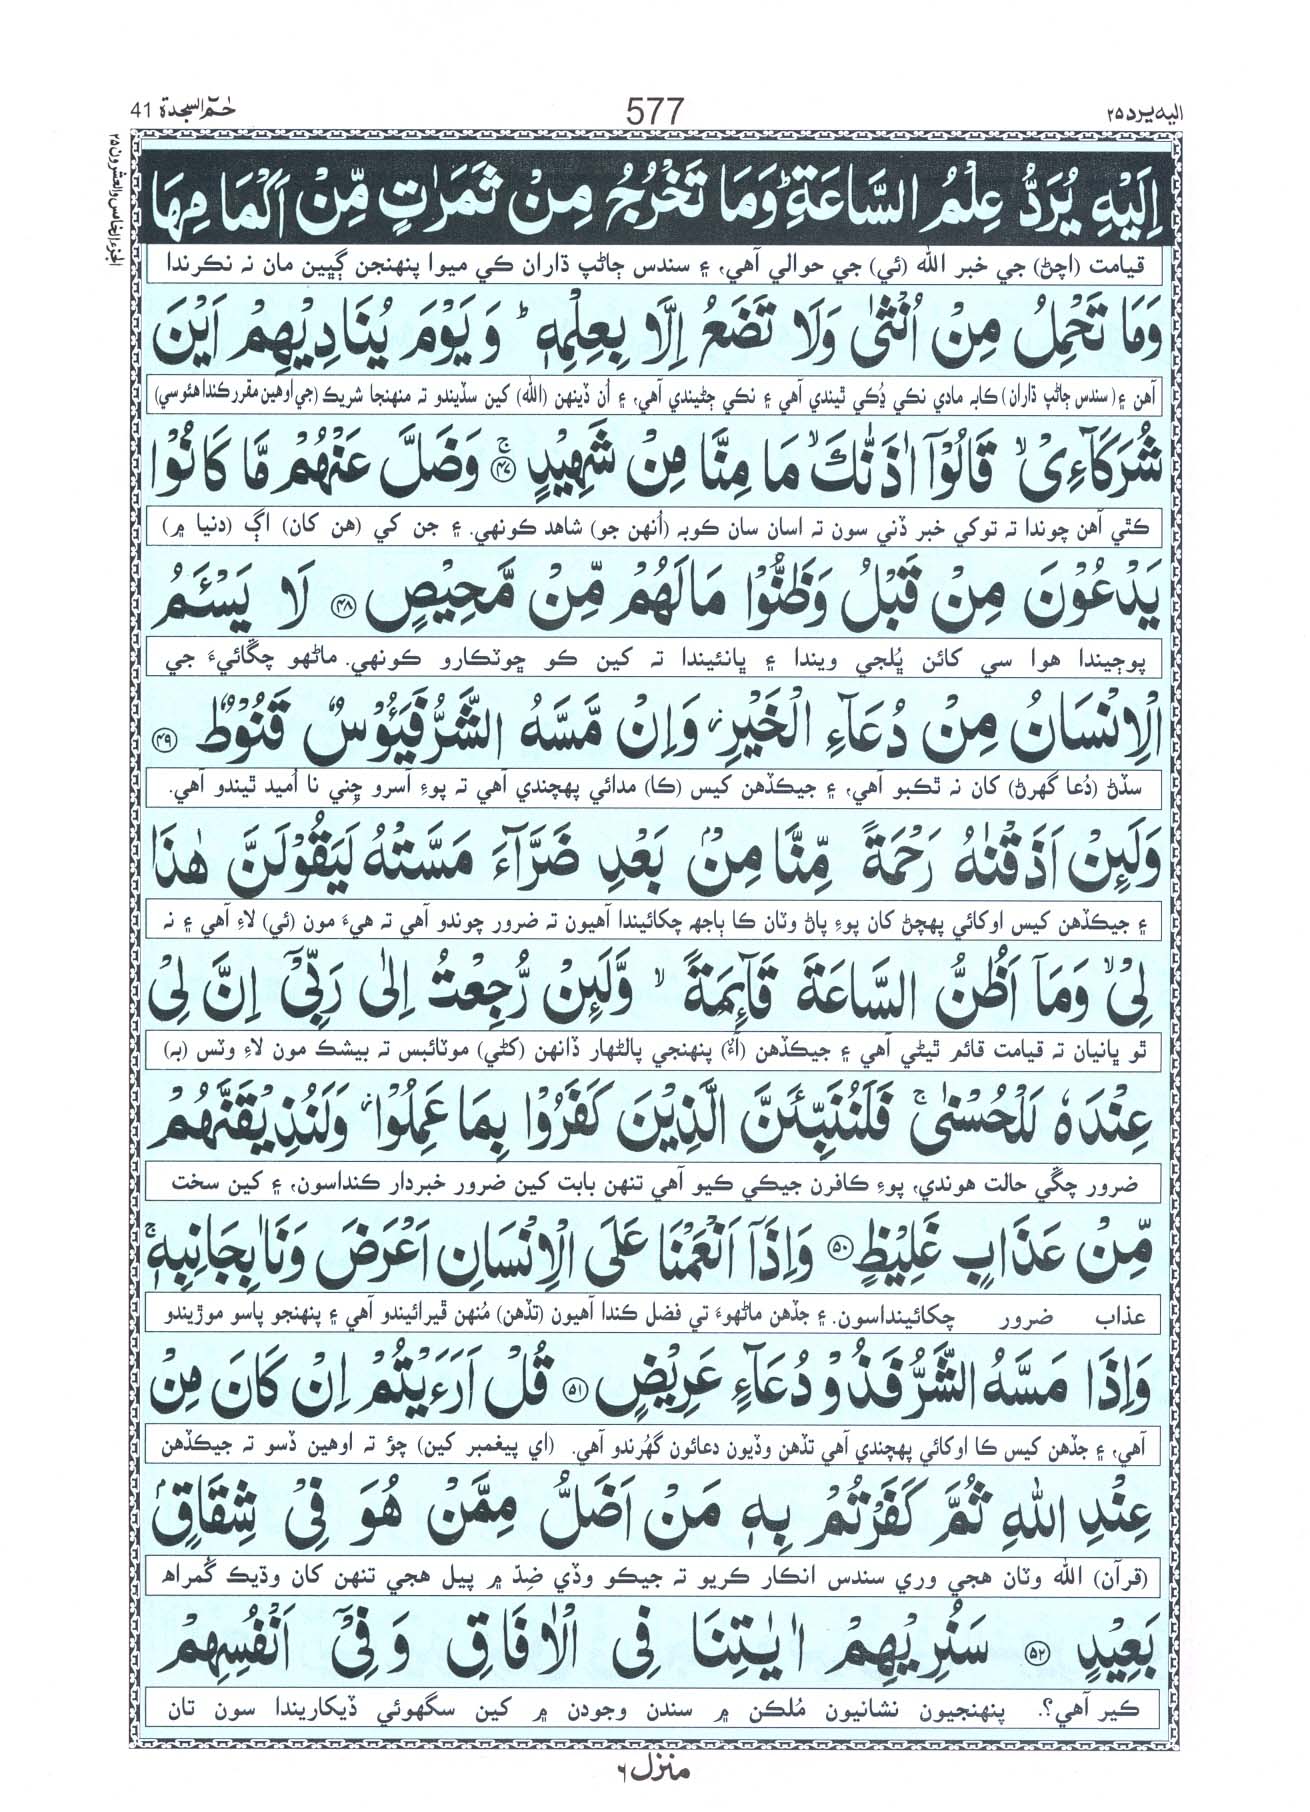 اليه يرد ٢٥
577
حٰمٓ السجدة 41
الجزء الخامس والعشرون ٢٥
اِلَيْهِ يُرَدُّ عِلْمُ السَّاعَةِ ؕ وَمَا تَخْرُجُ مِنْ ثَمَرٰتٍ مِّنْ اَكْمَا مِهَا
قيامت (اچڻ) جي خبر الله (ئي) جي حوالي آهي، ۽ سندس ڄاڻپ ڌاران ڪي ميوا پنهنجن ڳڀين مان نہ نڪرندا
وَمَا تَحْمِلُ مِنْ اُنْثٰى وَلَا تَضَعُ اِلَّا بِعِلْمِهٖ ؕ وَيَوْمَ يُنَادِيْهِمْ اَيْنَ
آهن ۽ (سندس ڄاڻپ ڌاران) ڪابہ مادي نڪي ڍُڪي ٿيندي آهي ۽ نڪي ڄڻيندي آهي، ۽ اُن ڏينهن (الله) کين سڏيندو تہ منهنجا شريڪ (جي اوهين مقرر ڪندا هئوسي)
شُرَكَآءِىْ ۙ قَالُوْٓا اٰذَنّٰكَ ۙ مَا مِنَّا مِنْ شَهِيْدٍ ۚ ﴿۴۷﴾ وَضَلَّ عَنْهُمْ مَّا كَانُوْا
ڪٿي آهن چوندا تہ توکي خبر ڏني سون تہ اسان سان ڪوبہ (اُنهن جو) شاهد ڪونهي. ۽ جن کي (هن کان) اڳ (دنيا ۾)
يَدْعُوْنَ مِنْ قَبْلُ وَظَنُّوْا مَا لَهُمْ مِّنْ مَّحِيْصٍ ﴿۴۸﴾ لَا يَسْئَمُ
پوڄيندا هوا سي کائن ڀُلجي ويندا ۽ ڀانئيندا تہ کين ڪو ڇوٽڪارو ڪونهي. ماڻهو چڱائيءَ جي
الْاِنْسَانُ مِنْ دُعَآءِ الْخَيْرِ ؗ وَاِنْ مَّسَّهُ الشَّرُّ فَيَئُوْسٌ قَنُوْطٌ ﴿۴۹﴾
سڏڻ (دُعا گهرڻ) کان نہ ٿڪبو آهي، ۽ جيڪڏهن کيس (ڪا) مدائي پهچندي آهي تہ پوءِ آسرو ڇِني نا اُميد ٿيندو آهي.
وَلَئِنْ اَذَقْنٰهُ رَحْمَةً مِّنَّا مِنْۢ بَعْدِ ضَرَّآءَ مَسَّتْهُ لَيَقُوْلَنَّ هٰذَا
۽ جيڪڏهن کيس اوکائي پهچڻ کان پوءِ پاڻ وٽان ڪا ٻاجهہ چکائيندا آهيون تہ ضرور چوندو آهي تہ هيءَ مون (ئي) لاءِ آهي ۽ نہ
لِىْ ۙ وَمَآ اَظُنُّ السَّاعَةَ قَآئِمَةً ۙ وَّلَئِنْ رُّجِعْتُ اِلٰى رَبِّىْٓ اِنَّ لِىْ
ٿو ڀانيان تہ قيامت قائم ٿيڻي آهي ۽ جيڪڏهن (آءٌ) پنهنجي پالڻهار ڏانهن (کڻي) موٽائبس تہ بيشڪ مون لاءِ وٽس (بہ)
عِنْدَهٗ لَلْحُسْنٰى ۚ فَلَنُنَبِّئَنَّ الَّذِيْنَ كَفَرُوْا بِمَا عَمِلُوْا ؗ وَلَنُذِيْقَنَّهُمْ
ضرور چڱي حالت هوندي، پوءِ ڪافرن جيڪي ڪيو آهي تنهن بابت کين ضرور خبردار ڪنداسون، ۽ کين سخت
مِّنْ عَذَابٍ غَلِيْظٍ ﴿۵۰﴾ وَاِذَآ اَنْعَمْنَا عَلَى الْاِنْسَانِ اَعْرَضَ وَنَاٰ بِجَانِبِهٖ ۚ
عذاب ضرور چکائينداسون. ۽ جڏهن ماڻهوءَ تي فضل ڪندا آهيون (تڏهن) مُنهن ڦيرائيندو آهي ۽ پنهنجو پاسو موڙيندو
وَاِذَا مَسَّهُ الشَّرُّ فَذُوْ دُعَآءٍ عَرِيْضٍ ﴿۵۱﴾ قُلْ اَرَءَيْتُمْ اِنْ كَانَ مِنْ
آهي، ۽ جڏهن کيس ڪا اوکائي پهچندي آهي تڏهن وڏيون دعائون گهُرندو آهي. (اي پيغمبر کين) چؤ تہ اوهين ڏسو تہ جيڪڏهن
عِنْدِ اللّٰهِ ثُمَّ كَفَرْتُمْ بِهٖ مَنْ اَضَلُّ مِمَّنْ هُوَ فِىْ شِقَاقٍۢ
(قرآن) الله وٽان هجي وري سندس انڪار ڪريو تہ جيڪو وڏي ضِدّ ۾ پيل هجي تنهن کان وڌيڪ گُمراهہ
بَعِيْدٍ ﴿۵۲﴾ سَنُرِيْهِمْ اٰيٰتِنَا فِى الْاٰفَاقِ وَفِىْٓ اَنْفُسِهِمْ
ڪير آهي؟. پنهنجيون نشانيون مُلڪن ۾ سندن وجودن ۾ کين سگهوئي ڏيکاريندا سون تان
منزل ٦